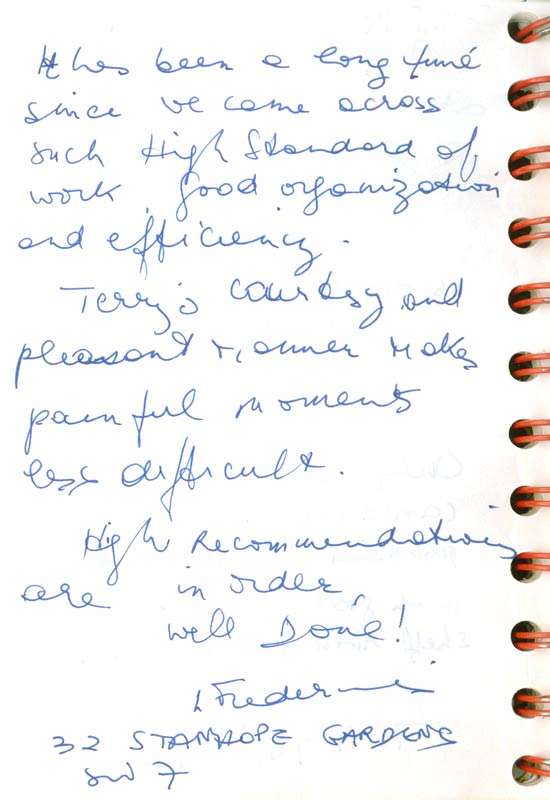 It has been a long time
since we came across
such High Standard of
work, good organization
and efficiency.
Terry's courtesy and
pleasant manner makes
painful moments
less difficult.
High Recommendations
are in order,
well Done!
32 STANHOPE GARDENS
SW 7